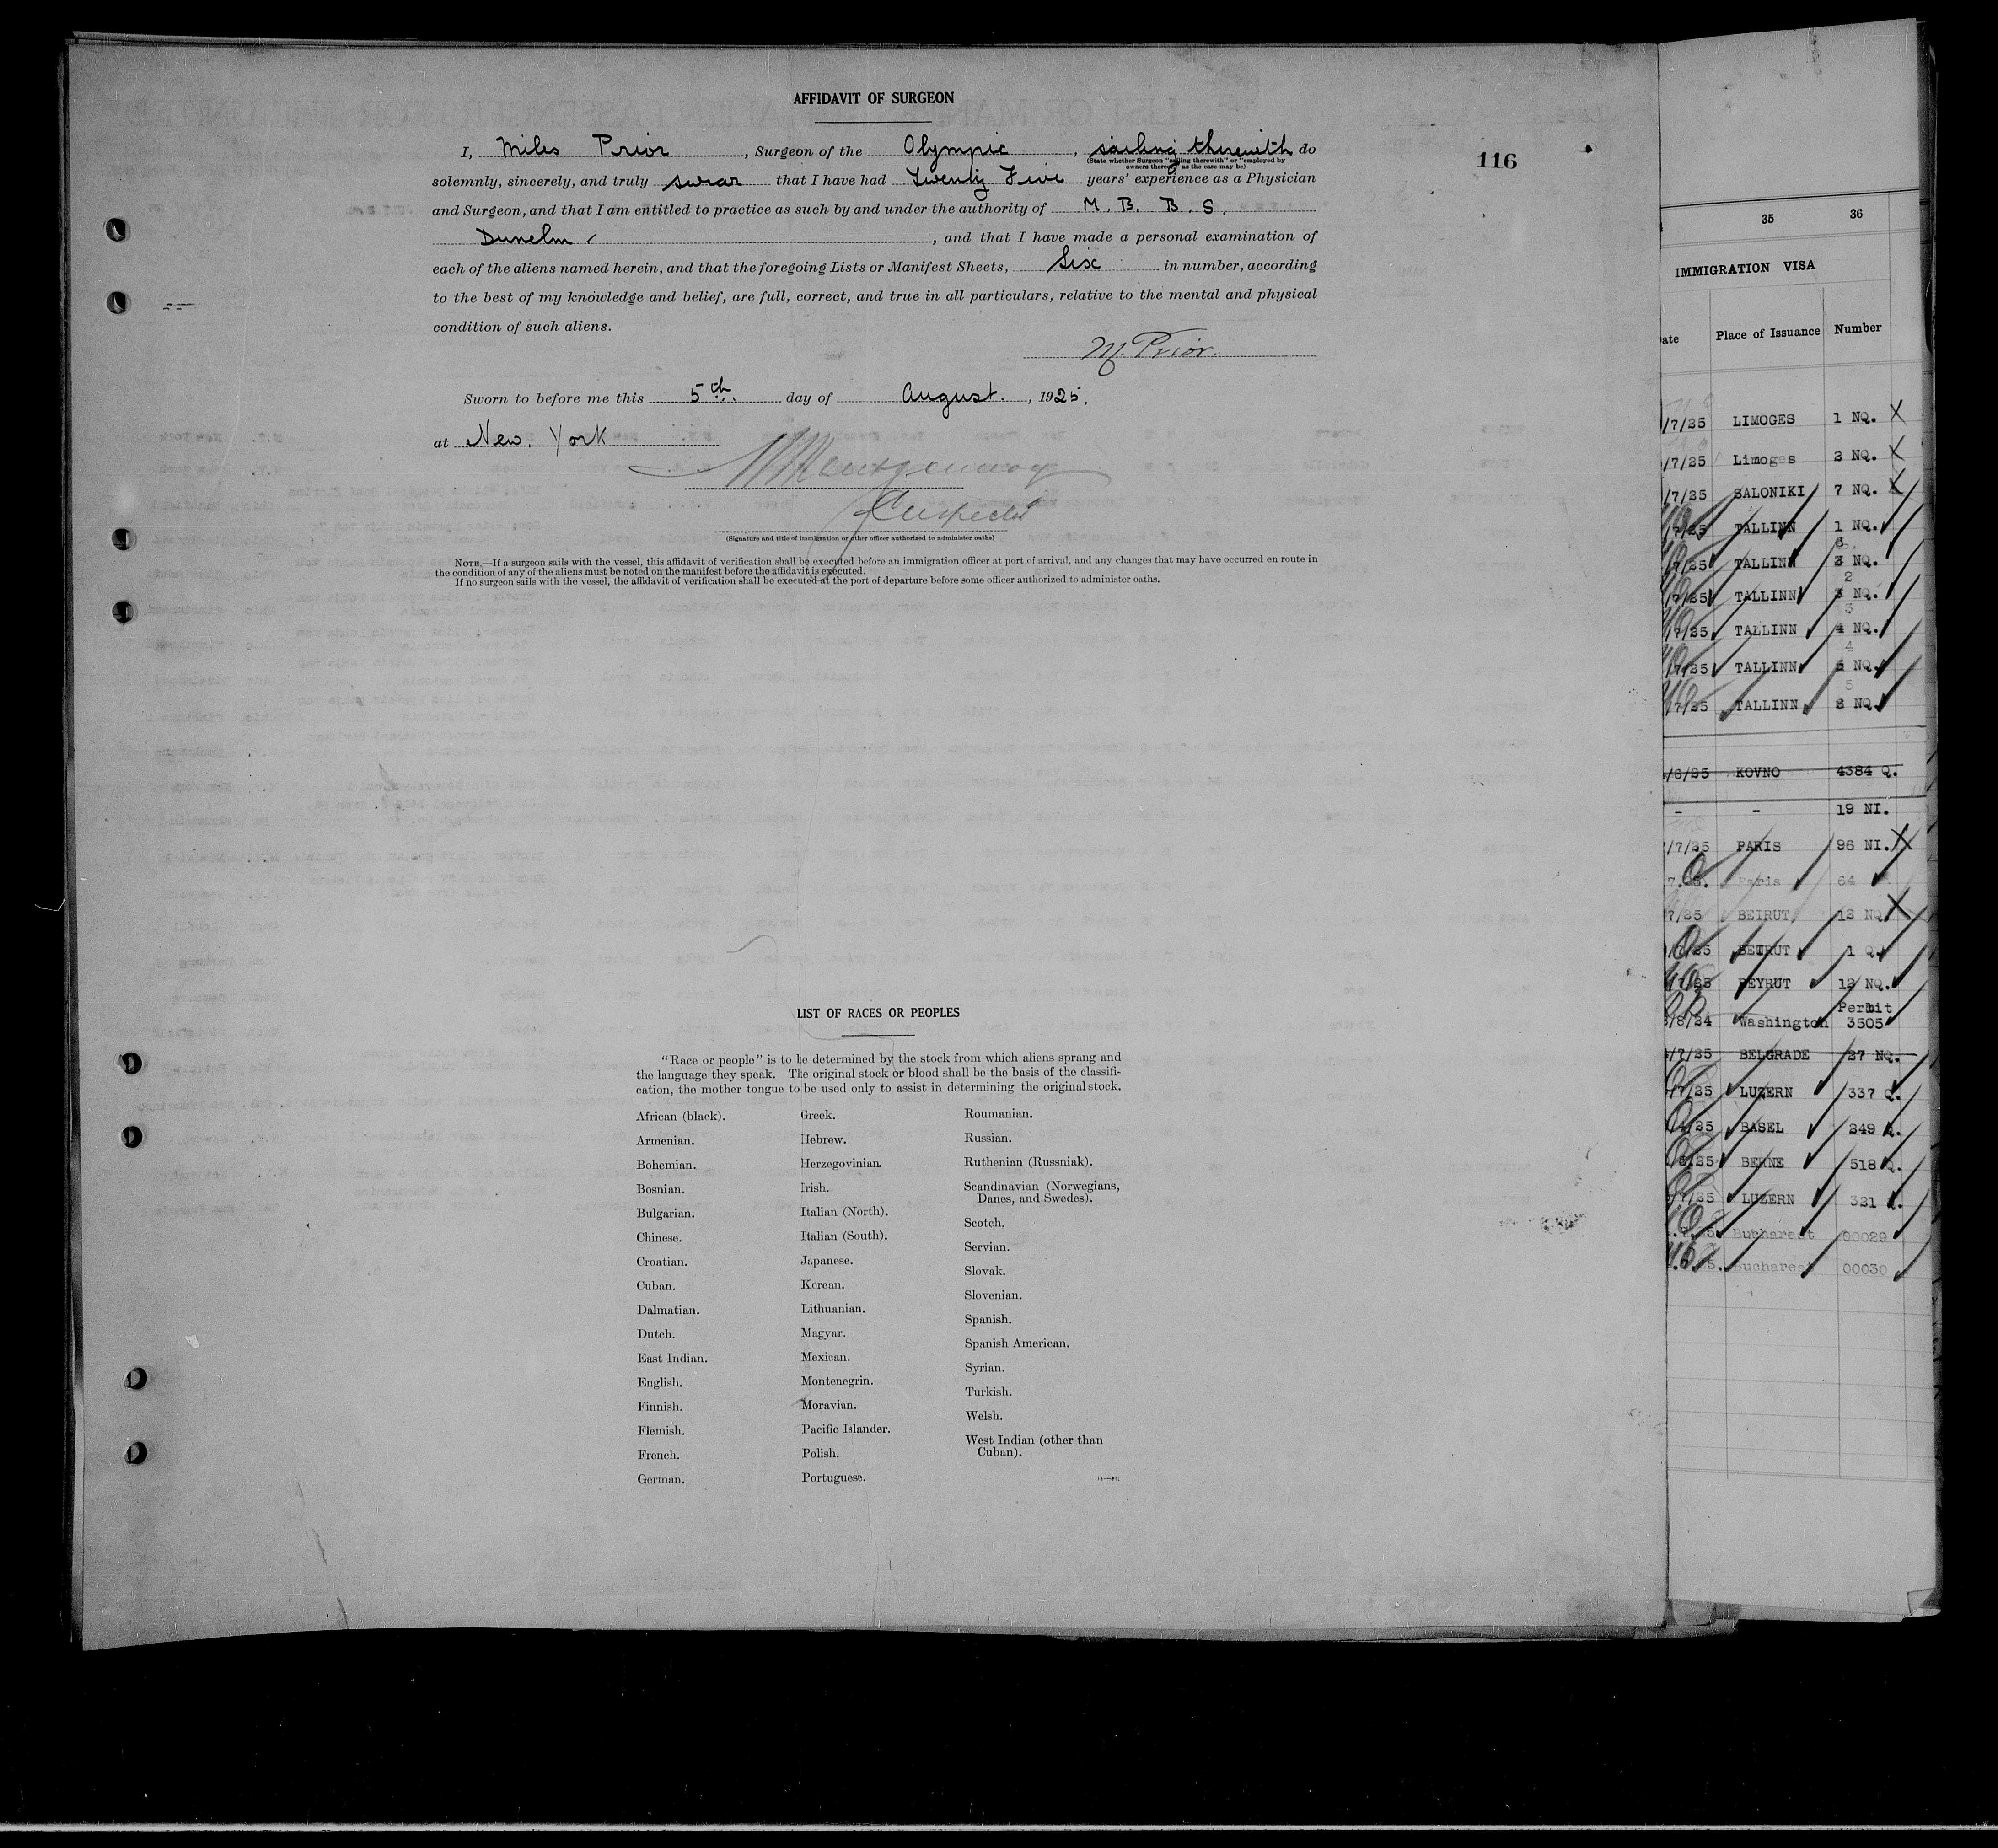 AFFIDAVIT OF SURGEON
I, Miles Prior, Surgeon of the Olympic, sailing therewith do
(State whether Surgeon "sailing therewith" or "employed by
owners thereof," as the case may be)
116
solemnly, sincerely, and truly swear that I have had Twenty Five years' experience as a Physician
and Surgeon, and that I am entitled to practice as such by and under the authority of M. B. B. S.
Dunelm, and that I have made a personal examination of
each of the aliens named herein, and that the foregoing Lists or Manifest Sheets, Six in number, according
to the best of my knowledge and belief, are full, correct, and true in all particulars, relative to the mental and physical
condition of such aliens.
M. Prior.
Sworn to before me this 5th. day of August., 1925.
at New York
(Signature and title of immigration or other officer authorized to administer oaths)
NOTE.—If a surgeon sails with the vessel, this affidavit of verification shall be executed before an immigration officer at port of arrival, and any changes that may have occurred en route in
the condition of any of the aliens must be noted on the manifest before the affidavit is executed.
If no surgeon sails with the vessel, the affidavit of verification shall be executed at the port of departure before some officer authorized to administer oaths.
LIST OF RACES OR PEOPLES
"Race or people" is to be determined by the stock from which aliens sprang and
the language they speak. The original stock or blood shall be the basis of the classifi-
cation, the mother tongue to be used only to assist in determining the original stock.
African (black).
Armenian.
Bohemian.
Bosnian.
Bulgarian.
Chinese.
Croatian.
Cuban.
Dalmatian.
Dutch.
East Indian.
English.
Finnish.
Flemish.
French.
German.
Greek.
Hebrew.
Herzegovinian.
Irish.
Italian (North).
Italian (South).
Japanese.
Korean.
Lithuanian.
Magyar.
Mexican.
Montenegrin.
Moravian.
Pacific Islander.
Polish.
Portuguese.
Roumanian.
Russian.
Ruthenian (Russniak).
Scandinavian (Norwegians,
Danes, and Swedes).
Scotch.
Servian.
Slovak.
Slovenian.
Spanish.
Spanish American.
Syrian.
Turkish.
Welsh.
West Indian (other than
Cuban).
35 36
IMMIGRATION VISA
ate Place of Issuance Number
/7/25 LIMOGES 1 NQ.
/7/25 Limoges 2 NQ.
/7/25 SALONIKI 7 NQ.
/7/25 TALLINN 1 NQ.
/7/25 TALLINN NQ.
/7/25 TALLINN NQ.
/7/25 TALLINN NQ.
/7/25 TALLINN NQ.
/7/25 TALLINN NQ.
/6/25 KOVNO 4384 Q.
- - 19 NI.
/7/25 PARIS 96 NI.
Paris 64
7/25 BEIRUT 13 NQ
/7/25 BEIRUT 1 Q.
BEYRUT 12 NQ.
Permit
/8/24 Washington 3505
/7/25 BELGRADE 27 NQ.
/7/25 LUZERN 337 Q.
/25 BASEL 349 Q.
/25 BERNE 518 Q.
/7/25 LUZERN 331 Q.
Bucharest 00029
Bucharest 00030